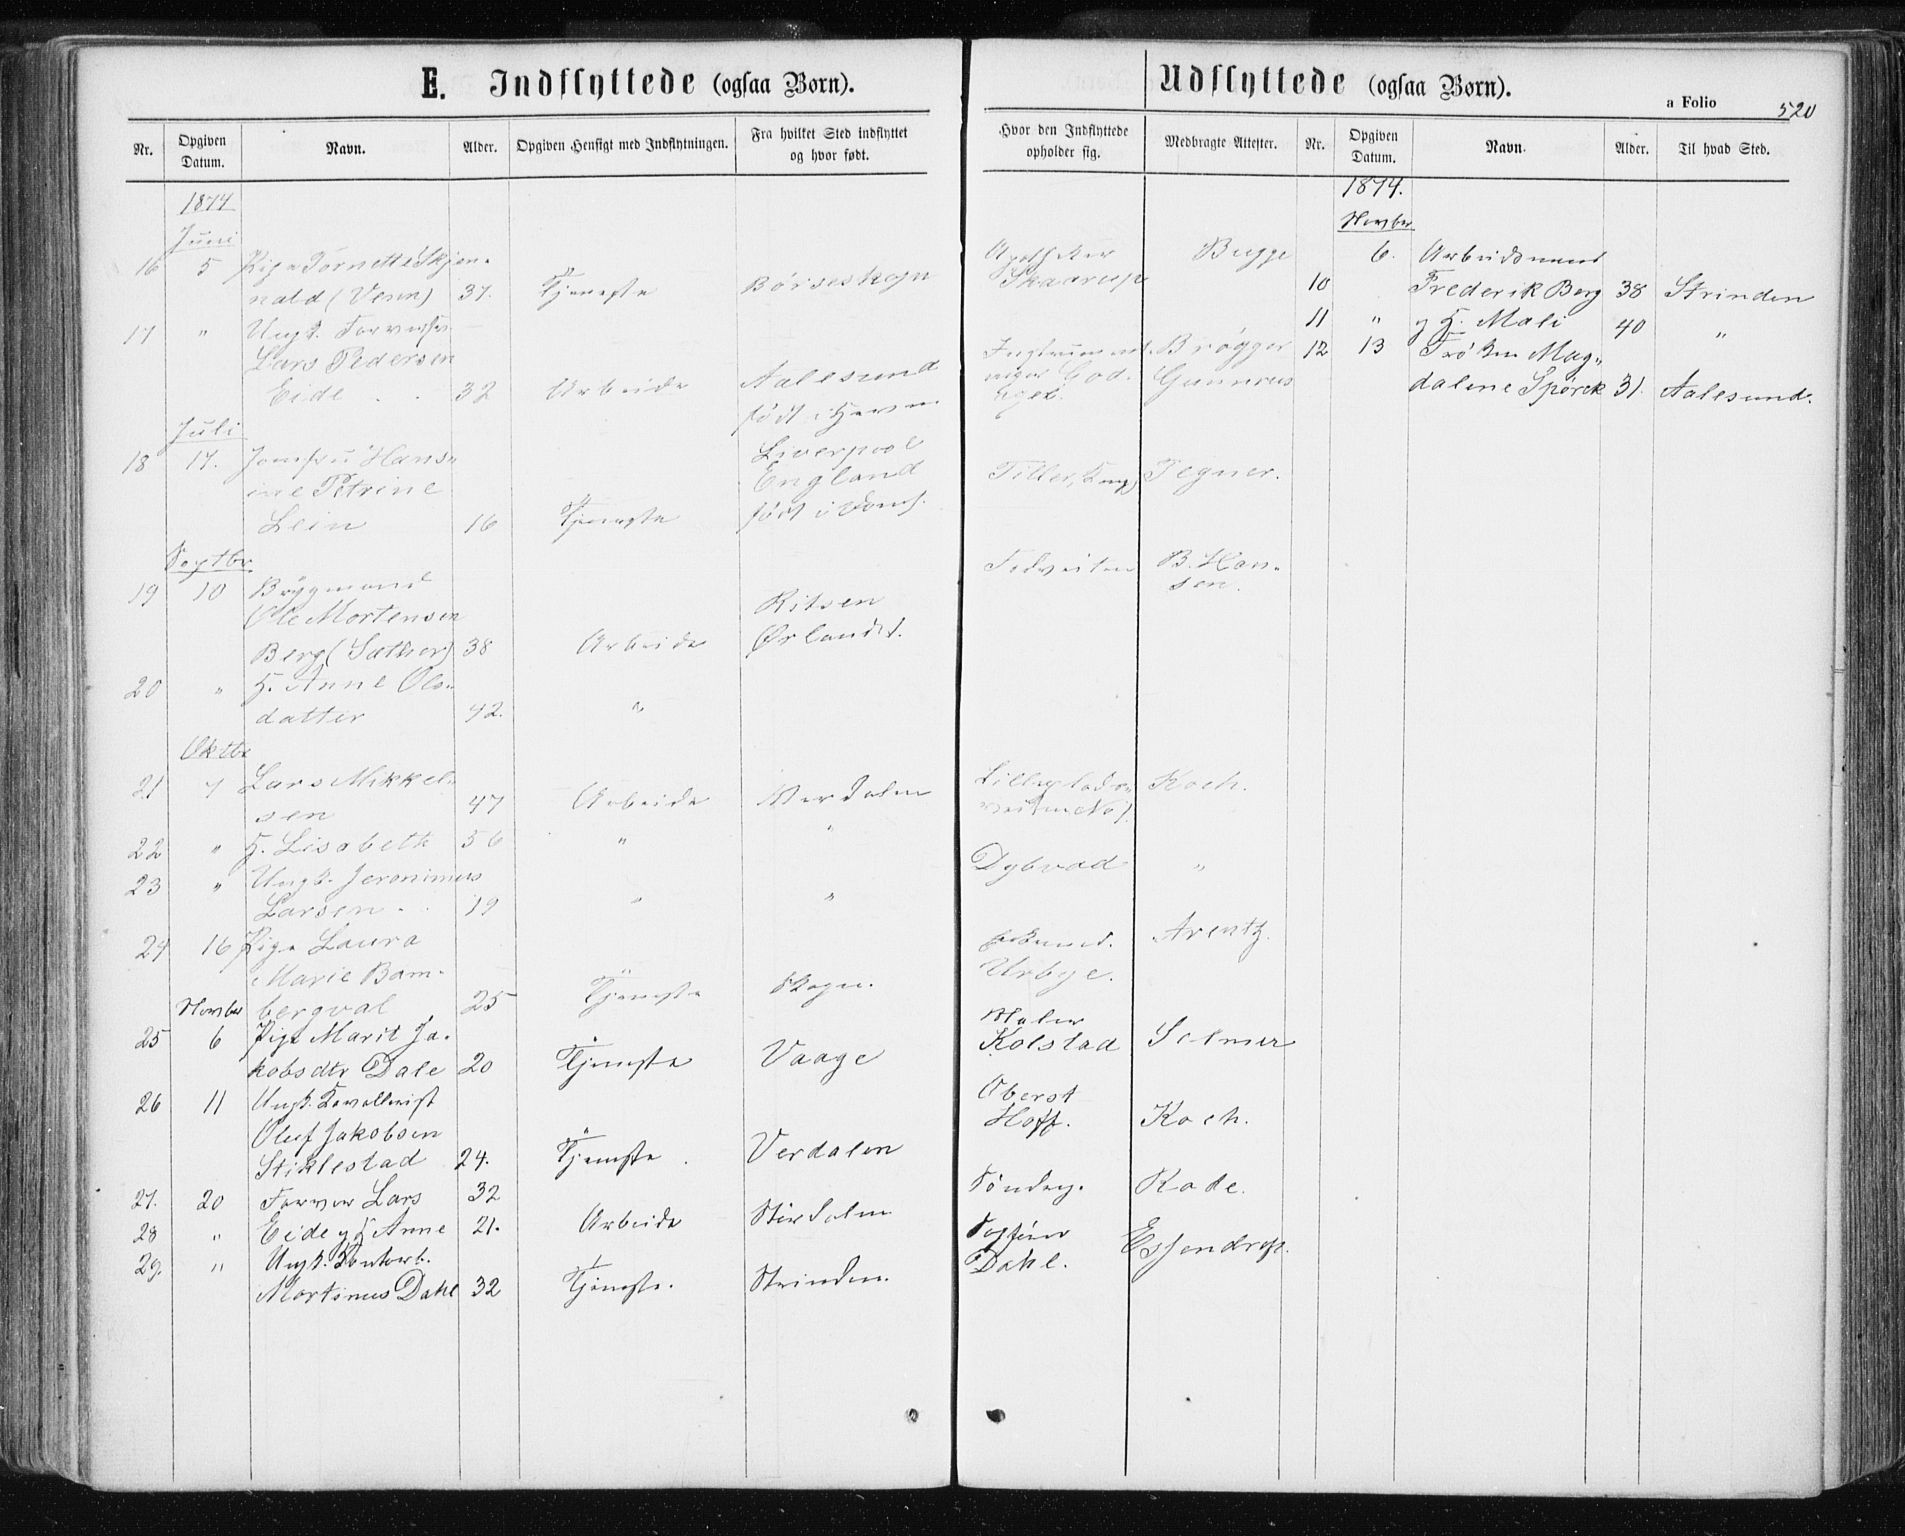 E. Indflyttede (ogsaa Børn).
Udflyttede (ogsaa Børn).
a Folio 520
Nr. Opgiven Datum. Navn. Alder. Opgiven Hensigt med Indflytningen. Fra hvilket Sted indflyttet og hvor født.
Hvor den Indflyttede opholder sig. Medbragte Attester. Nr. Opgiven Datum. Navn. Alder. Til hvad Sted.
1874
Juni
16 5 Pige Tornette Skjen- Apotheker Bugge
nald (Venn) 37. Tjeneste Børseskogn Skaarup
17 " Ungk. Farversv.
Lars Pedersen Brøgger
Eide . . 32 Arbeide Aalesund Gunnerus
født i
Juli
18 17. Jomfru Hans- Liverpool
ine Petrine England Tiller, Tegner.
Lein 16 Tjeneste født i
Septbr.
19 10 Bygmand Todveiten B. Han-
sen.
Ole Mortensen Ritsen
Berg (Sæther) 38 Arbeide Ørlandet.
20 " H. Anne Ols-
datter 42. "
Oktbr
21 7 Lars Mikkel- Koch.
sen 47 Arbeide Værdalen
22 " H. Lisabeth 56 " "
23 " Ungk. Jeronimus Dybvad "
Larsen . . 19 " "
24 16 Pige Laura Arentz.
Marie Bam- Urbye.
bergval 25 Tjeneste Skogn.
Novbr
25 6 Pige Marit Ja- Maler
kobsdtr Dale 20 Tjeneste Vaage Kolstad Selmer
26 11 Ungk. Kavallerist Oberst
Oluf Jakobsen Hoff. Koch.
Stiklestad 24. Tjeneste . Verdalen
27. 20 Farver Lars 32 Søndreg. Rode.
28 " Eide og H. Anne 21. Arbeide Stirdalen
29. " Ungk. Kontorb. Fogfører Essendrop.
Martinus Dahl 32 Tjeneste. Strinden. Dahl.
1874.
Novbr
6. Arbeidsmand
10 Frederik Berg 38 Strinden
11 " og H. Mali 40 "
12 13 Frøken Mag-
dalene Spørck 31. Aalesund.